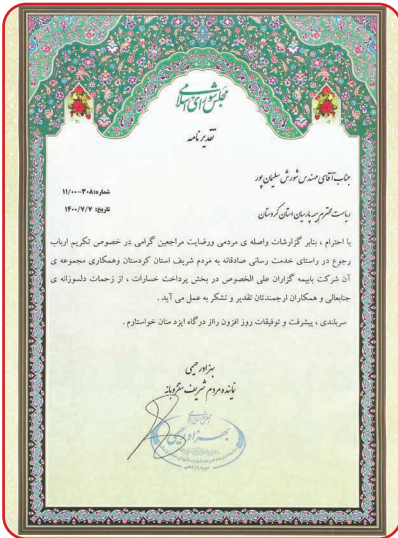 مجلس شورای اسلامی
تقدیرنامه
جناب آقای مهندس شورش سلیمان پور
شماره: ۳۰۸-۱۱/۰۰
ریاست محترم بیمه پارسیان استان کردستان
تاریخ: ۱۴۰۰/۷/۷
با احترام ، بنابر گزارشات واصله ی مردمی ورضایت مراجعین گرامی در خصوص تکریم ارباب
رجوع در راستای خدمت رسانی صادقانه به مردم شریف استان کردستان وهمکاری مجموعه ی
آن شرکت بابیمه گزاران علی الخصوص در بخش پرداخت خسارات ، از زحمات دلسوزانه ی
جنابعالی و همکاران ارجمندتان تقدیر و تشکر به عمل می آید .
سربلندی ، پیشرفت و توفیقات روز افزون رااز درگاه ایزد منان خواستارم .
بهزاد رحیمی
نماینده مردم شریف سقز و بانه
بهزاد رحیمی